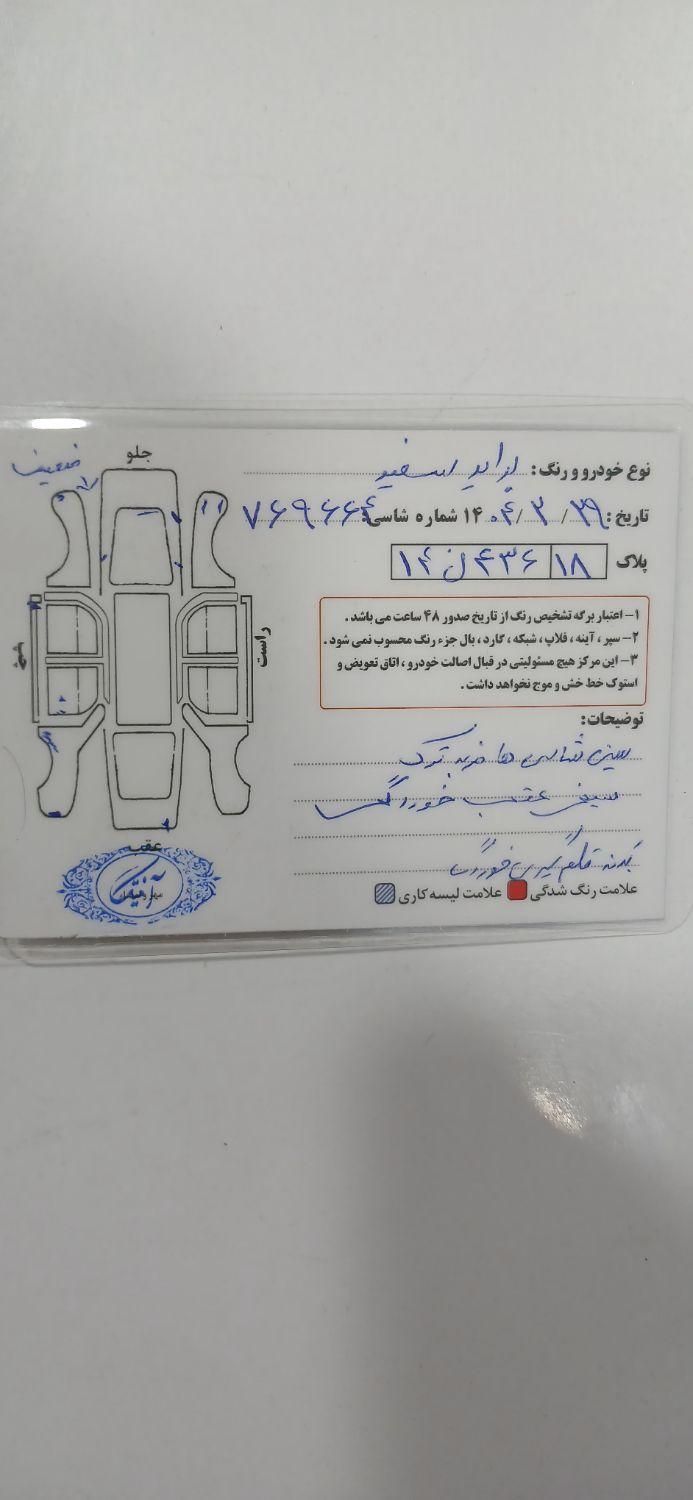 نوع خودرو و رنگ: پراید سفید
تاریخ: ۱۴۰۴/۳/۲۹ شماره شاسی: ۷۶۹۶۶۴
پلاک ۱۸ ۴۳۶ ل ۱۴
۱- اعتبار برگه تشخیص رنگ از تاریخ صدور ۴۸ ساعت می باشد.
۲- سپر، آینه، قلاپ، شبکه، گارد، بال جزء رنگ محسوب نمی شود.
۳- این مرکز هیچ مسئولیتی در قبال اصالت خودرو، اتاق تعویض و
استوک خط خش و موج نخواهد داشت.
توضیحات:
سینی شاسی ها ضربه ترک
سینی عقب خوردگی
بدنه قلم گیری خوردگی
علامت رنگ شدگی علامت لیسه کاری
جلو
ضعیف
راست
عقب